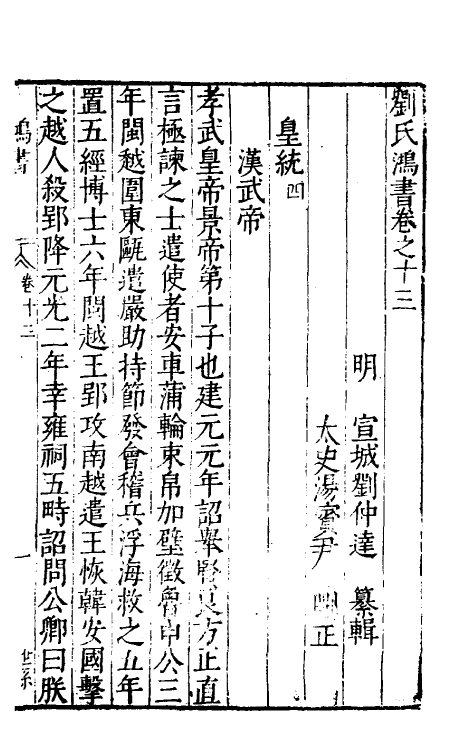 劉氏鴻書卷之十三
明　宣城劉仲達　纂輯
太史湯賓尹　刪正
皇統四
漢武帝
孝武皇帝景帝第十子也建元元年詔舉賢良方正直
言極諫之士遣使者安車蒲輪束帛加璧徵魯申公三
年閩越圍東甌遣嚴助持節發會稽兵浮海救之五年
置五經博士六年閩越王郢攻南越遣王恢韓安國擊
之越人殺郢降元光二年幸雍祠五畤詔問公卿曰朕
鴻書　卷十三　一